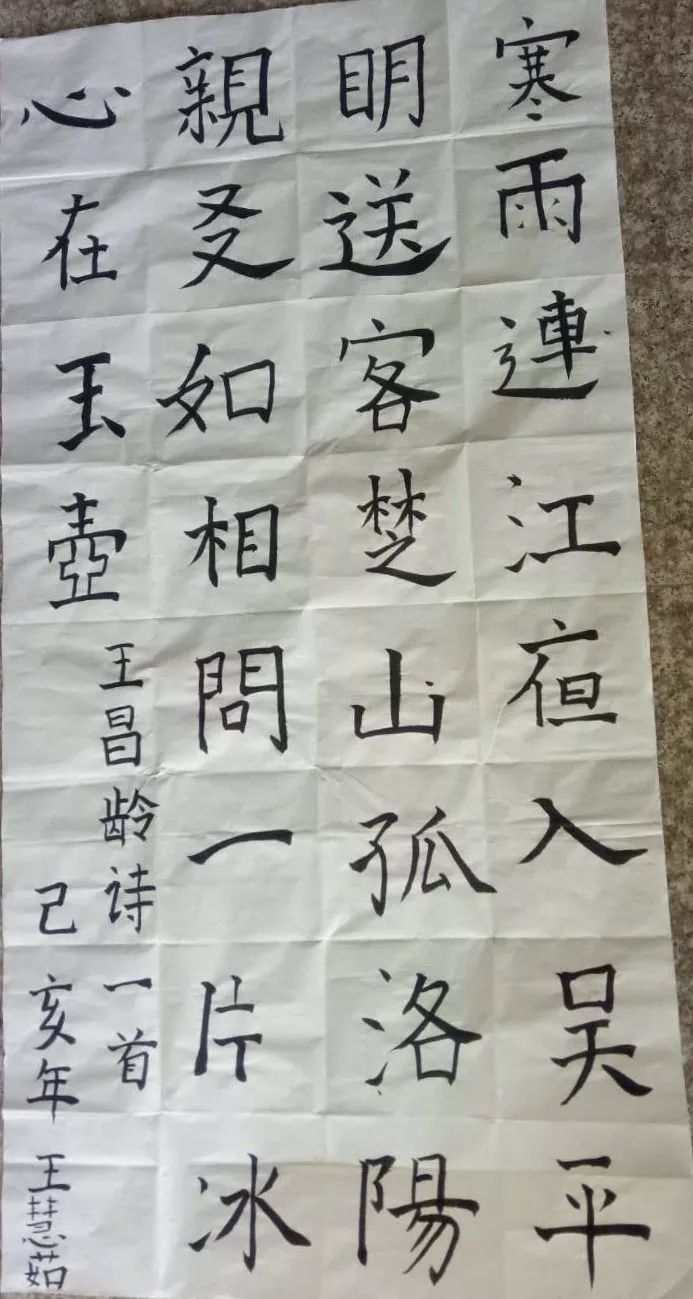 寒雨連江亱入吴平
眀送客楚山孤洛陽
親㕛如相問一片冰
心在玉壺
王昌龄诗一首
己亥年王慧茹